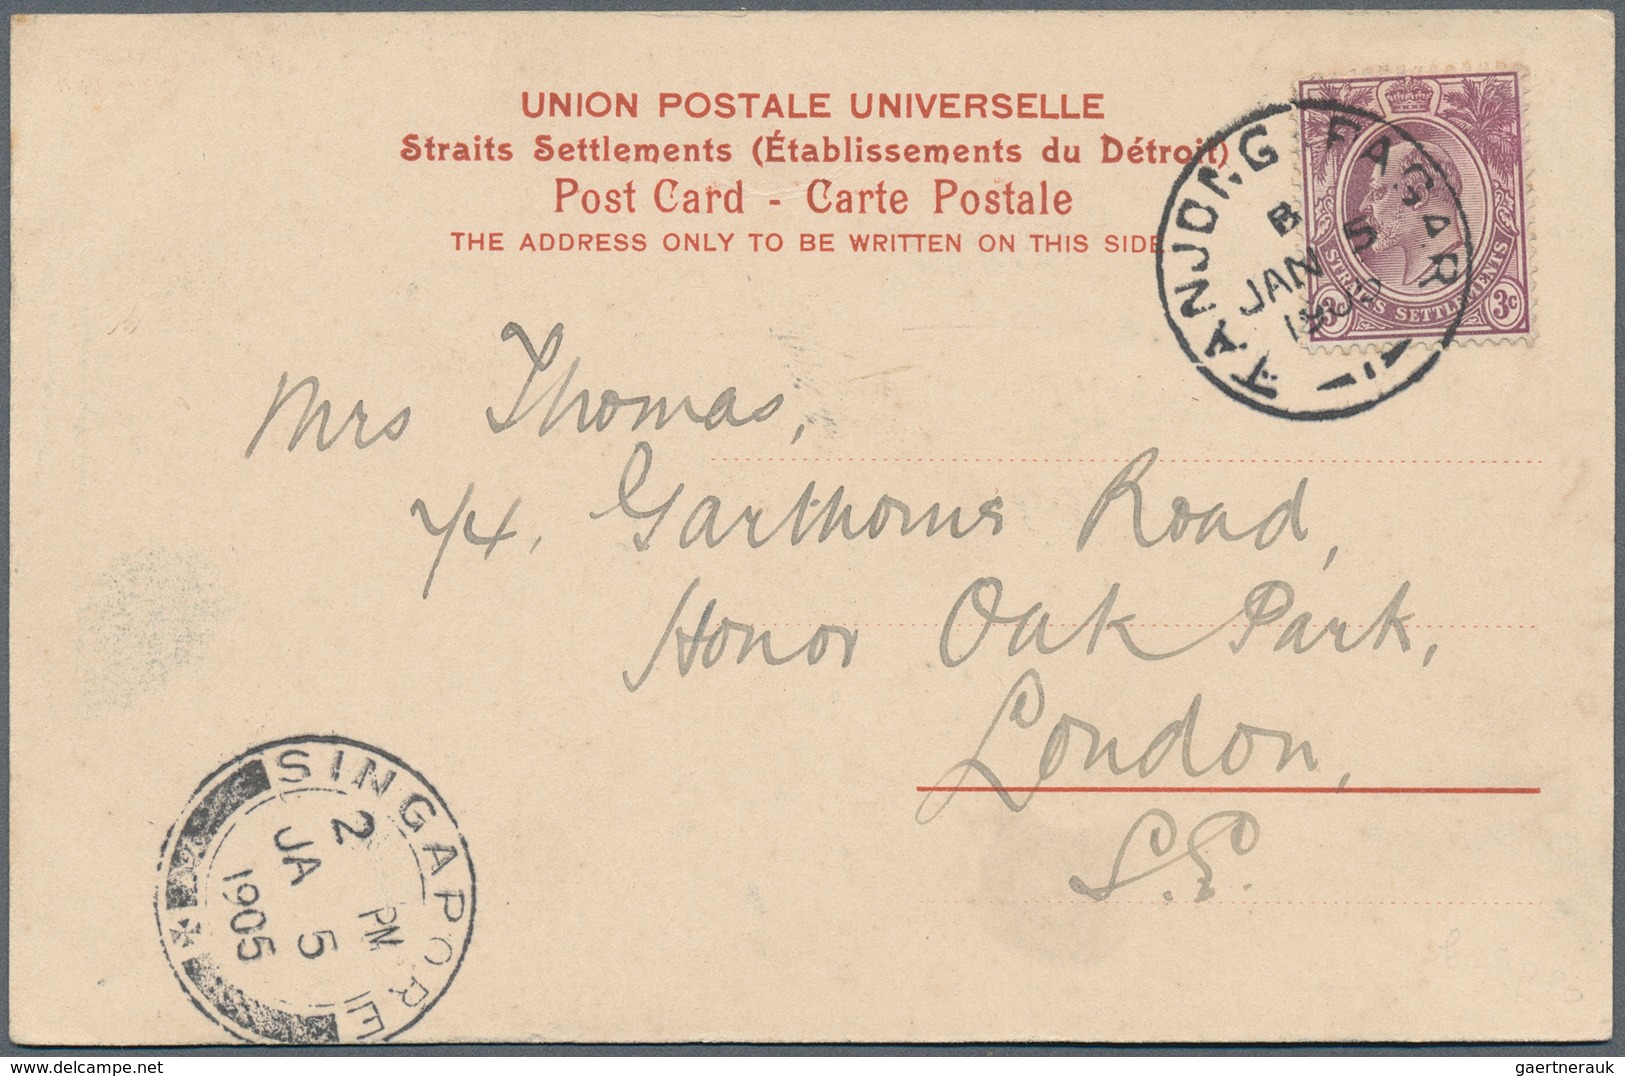 UNION POSTALE UNIVERSELLE
Straits Settlements (Établissements du Détroit)
Post Card - Carte Postale
THE ADDRESS ONLY TO BE WRITTEN ON THIS SIDE
TANJONG PAGAR
B
JAN 5
STRAITS SETTLEMENTS
3c 3c
Mrs Thomas,
Road,
Honor Oak Park,
London,
S.E.
SINGAPORE
2 PM
JA 5
1905
gaertnerauk